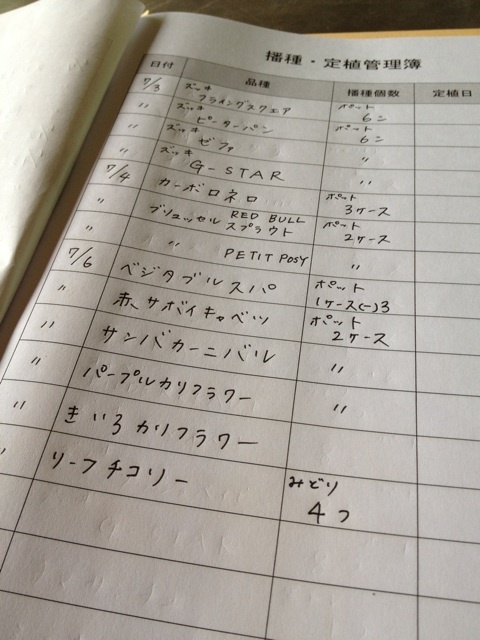 播種・定植管理簿
日付 品種 播種個数 定植日
7/3 ズッキ フライングスクエア ポット 6こ
〃 ズッキ ピーターパン ポット 6こ
〃 ズッキ ゼファ 〃
〃 ズッキ G-STAR 〃
7/4 カーボロネロ ポット 3ケース
〃 ブリュッセルスプラウト RED BULL ポット 2ケース
〃 〃 PETIT POSY 〃
7/6 ベジタブルスパ ポット 1ケース(-)3
〃 赤サボイキャベツ ポット 2ケース
〃 サンバカーニバル 〃
〃 パープルカリフラワー 〃
〃 きいろカリフラワー
〃 リーフチコリー みどり 4つ